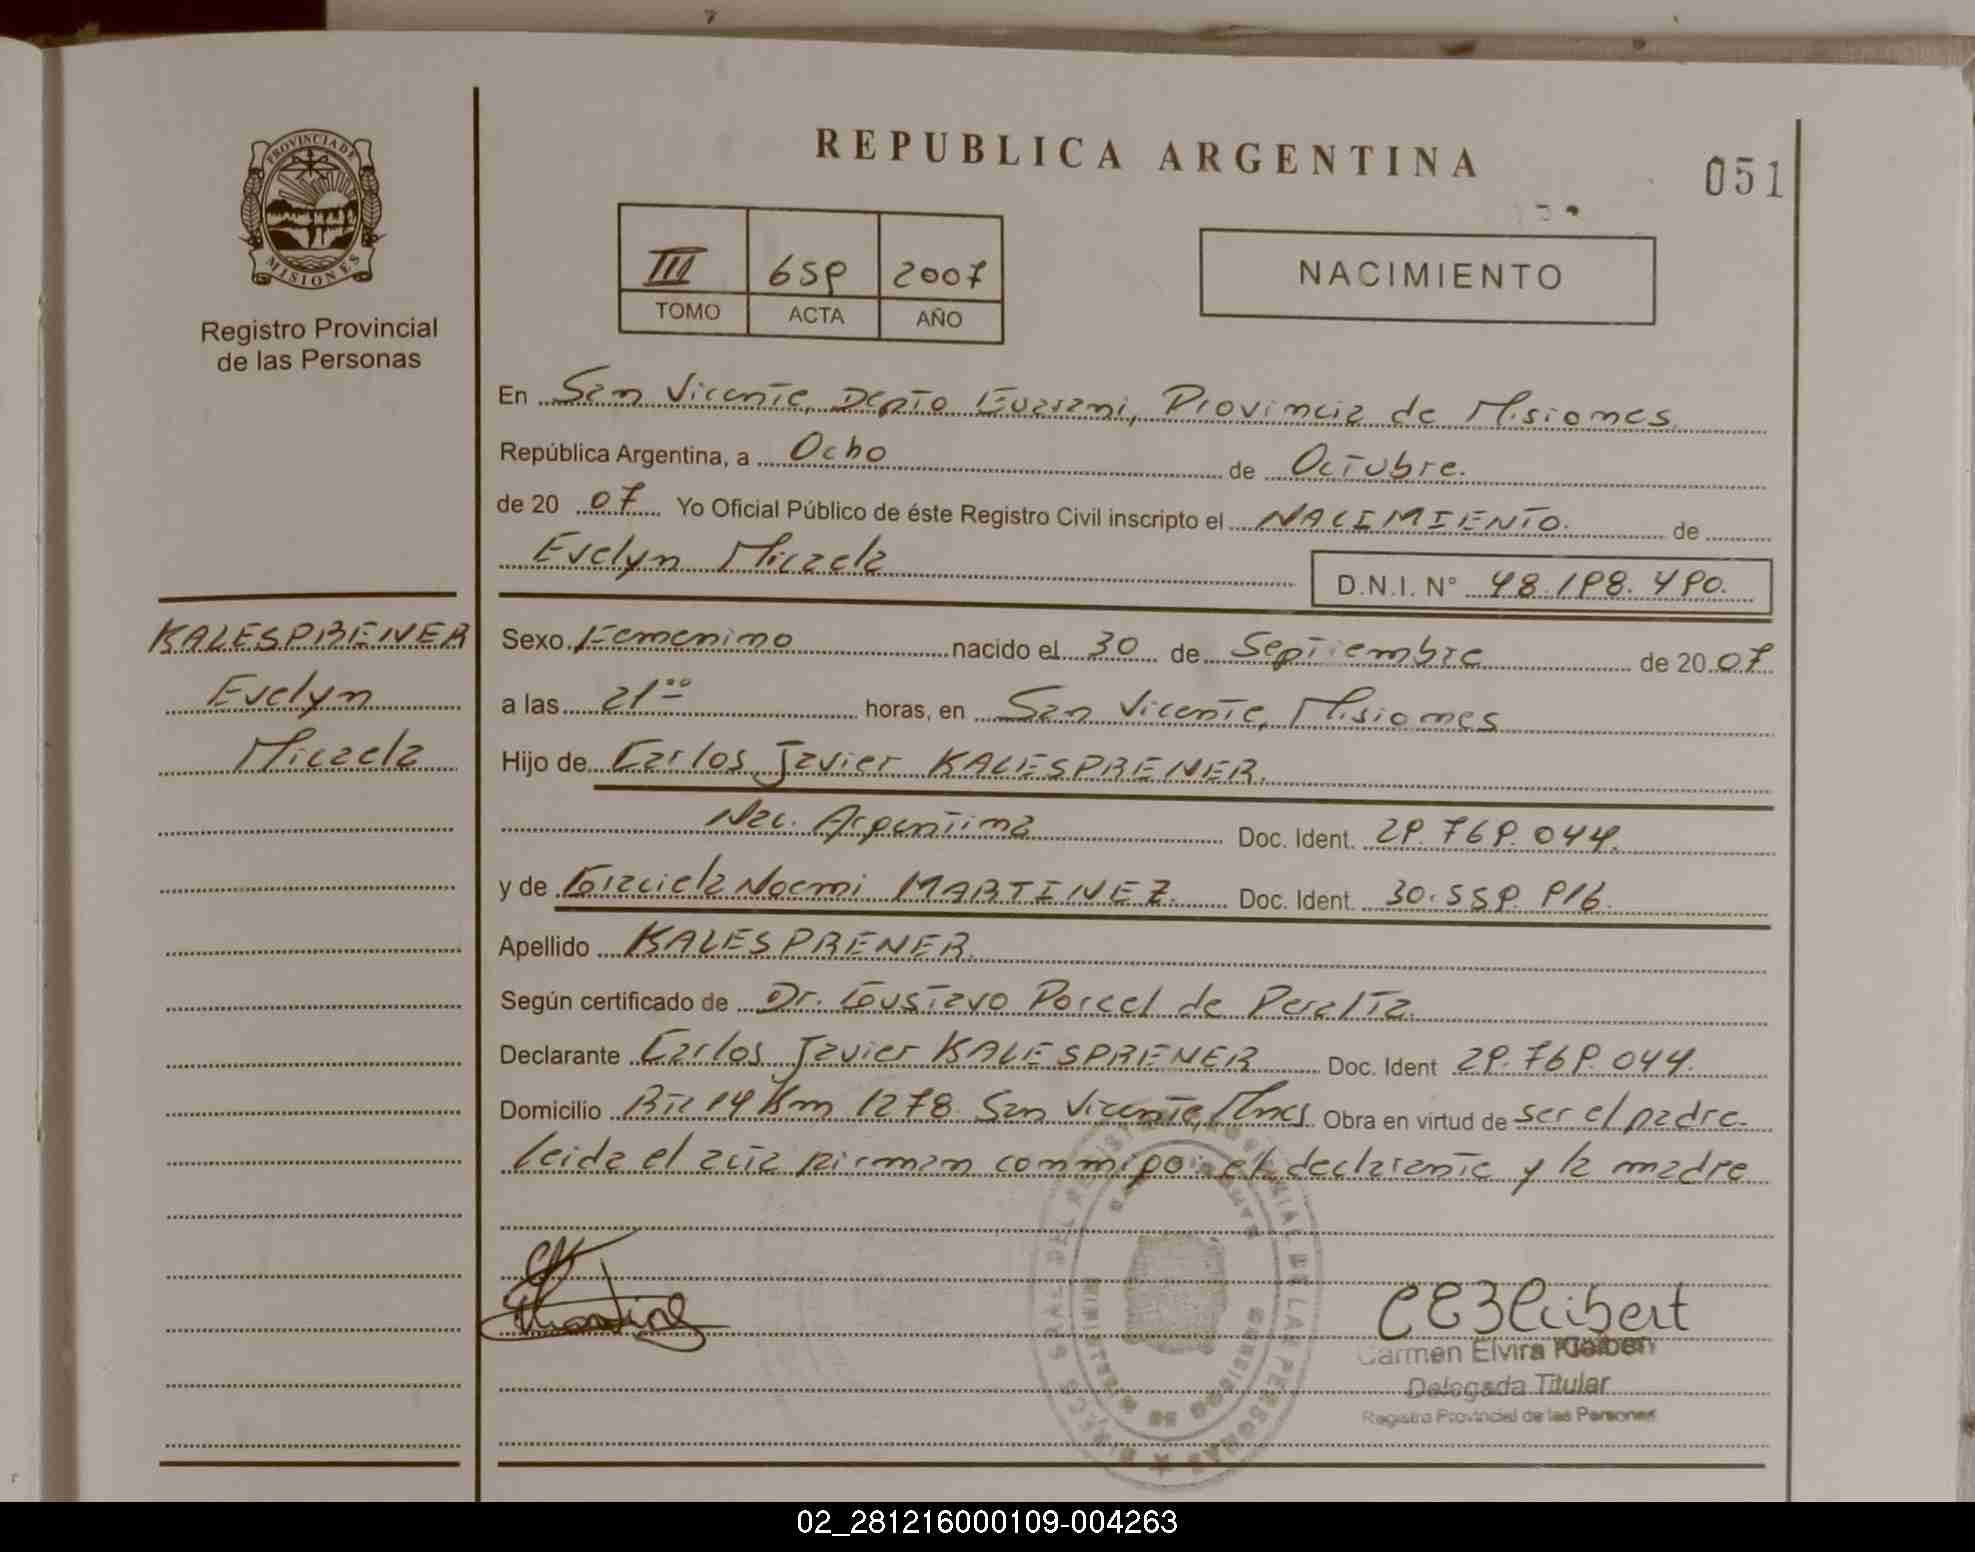 REPUBLICA ARGENTINA
051
PROVINCIA DE
MISIONES
Registro Provincial
de las Personas
III 659 2007
TOMO ACTA AÑO
NACIMIENTO
En San Vicente, Depto Guarani, Provincia de Misiones
República Argentina, a Ocho de Octubre.
de 20 07 Yo Oficial Público de éste Registro Civil inscripto el NACIMIENTO. de
Evelyn Micaela
D.N.I. N° 48.198.490.
KALESPRENER
Evelyn
Micaela
Sexo Femenino nacido el 30 de Septiembre de 20 07
a las 21°° horas, en San Vicente, Misiones
Hijo de Carlos Javier KALESPRENER.
Nac. Argentina Doc. Ident. 29.769.044.
y de Graciela Noemi MARTINEZ. Doc. Ident. 30.559.916.
Apellido KALESPRENER.
Según certificado de Dr. Gustavo Porcel de Peralta.
Declarante Carlos Javier KALESPRENER Doc. Ident 29.769.044.
Domicilio Rta 14 Km 1278 San Vicente, Mnes Obra en virtud de ser el padre.
leida el acta firman conmigo el declarante y la madre
Carmen Elvira
Delegada Titular
Registro Provincial de las Personas
02_281216000109-004263